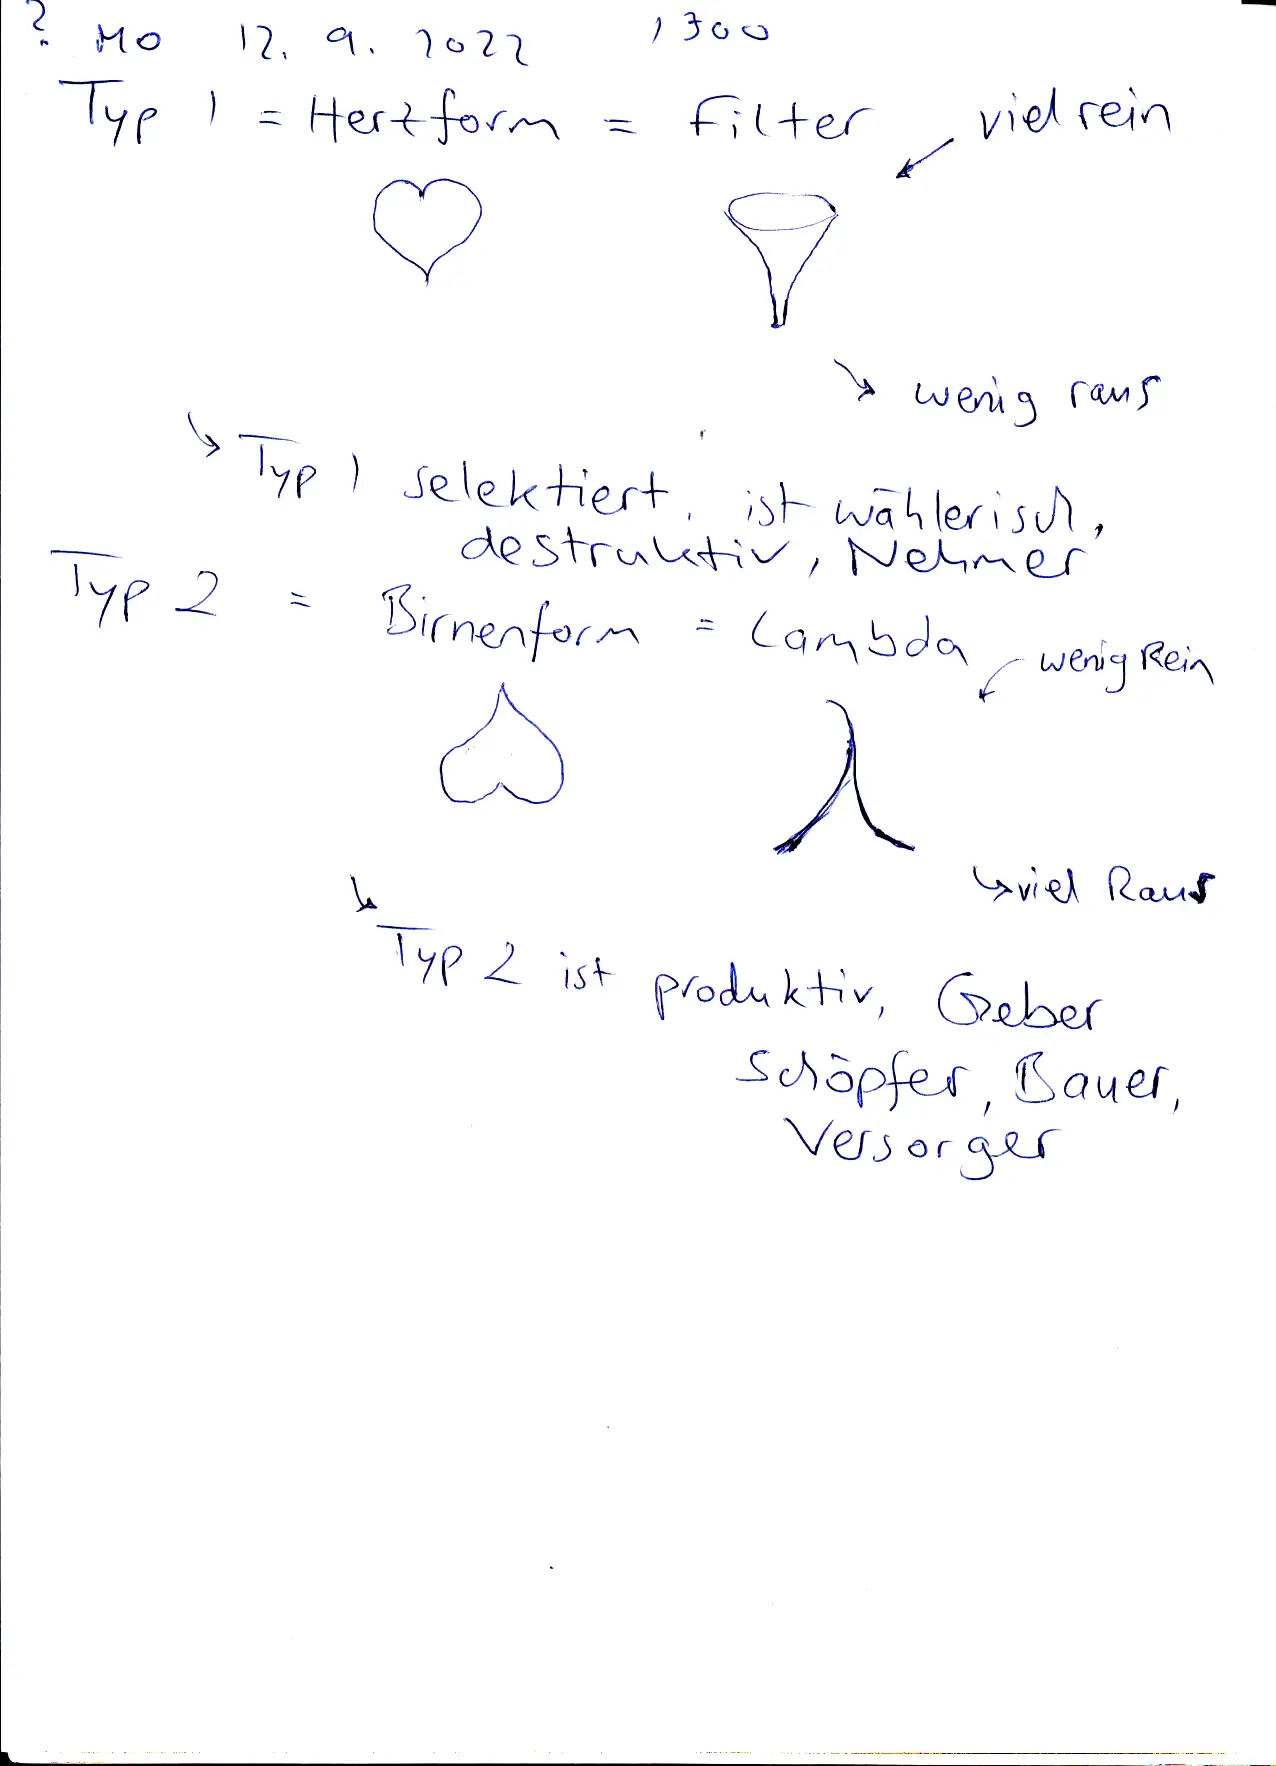 ? Mo 12. 9. 2022 1300
Typ 1 = Herzform = Filter viel rein
wenig raus
Typ 1 selektiert, ist wählerisch,
destruktiv, Nehmer
Typ 2 = Birnenform = Lambda wenig Rein
viel Raus
Typ 2 ist produktiv, Geber
Schöpfer, Bauer,
Versorger